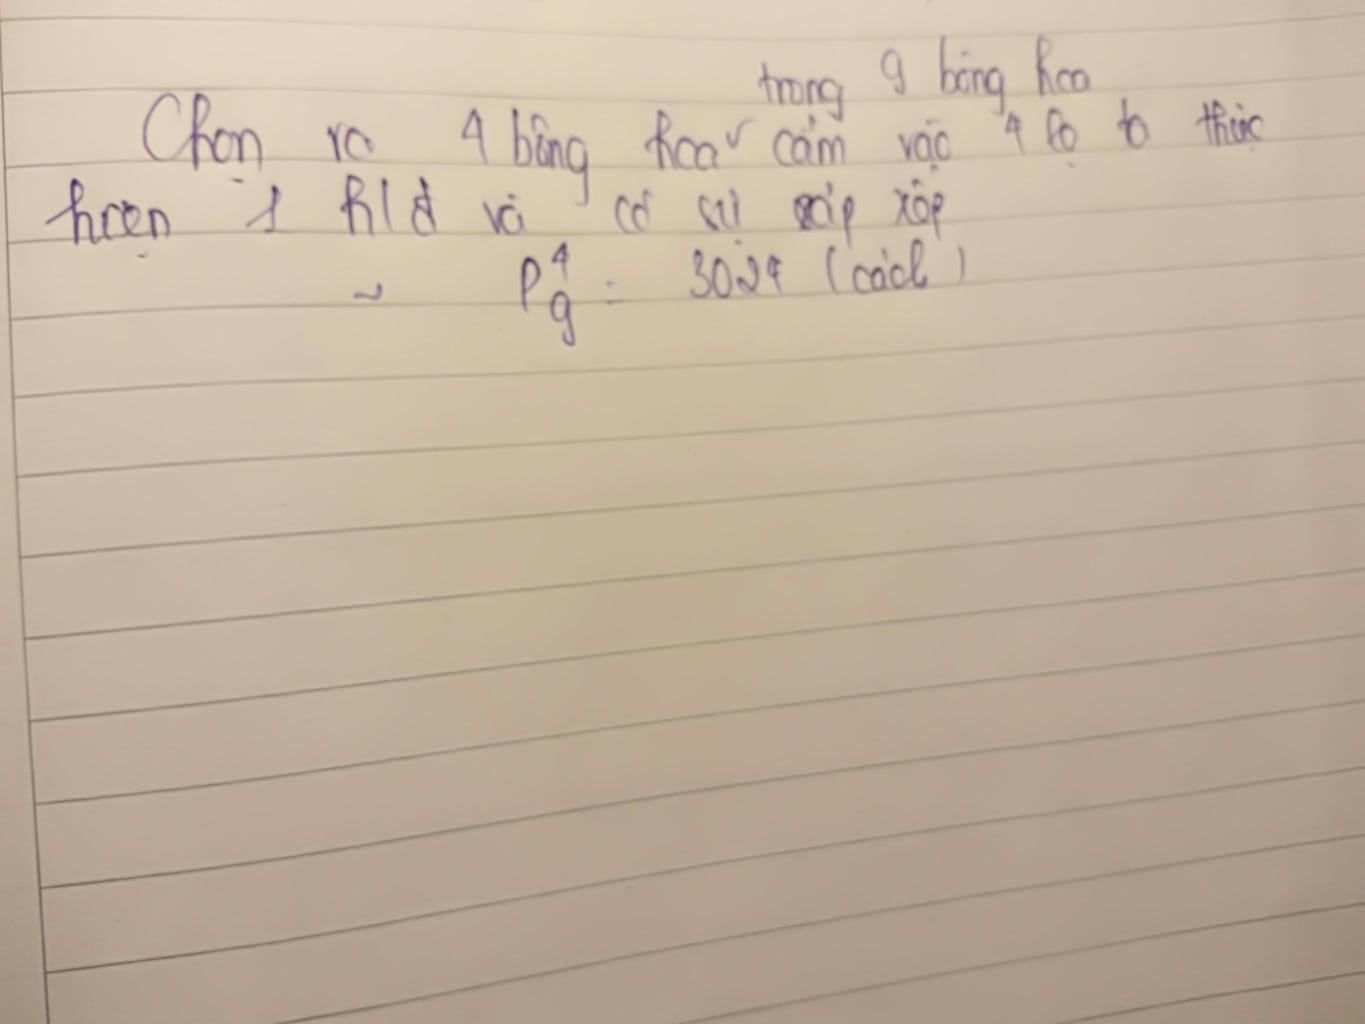 trong 9 bông hoa
Chọn ra 4 bông hoa ✓ cắm vào 4 lọ ta thực
hiện 1 hđ và có sự sắp xếp
~ P⁴₉ = 3024 (cách)